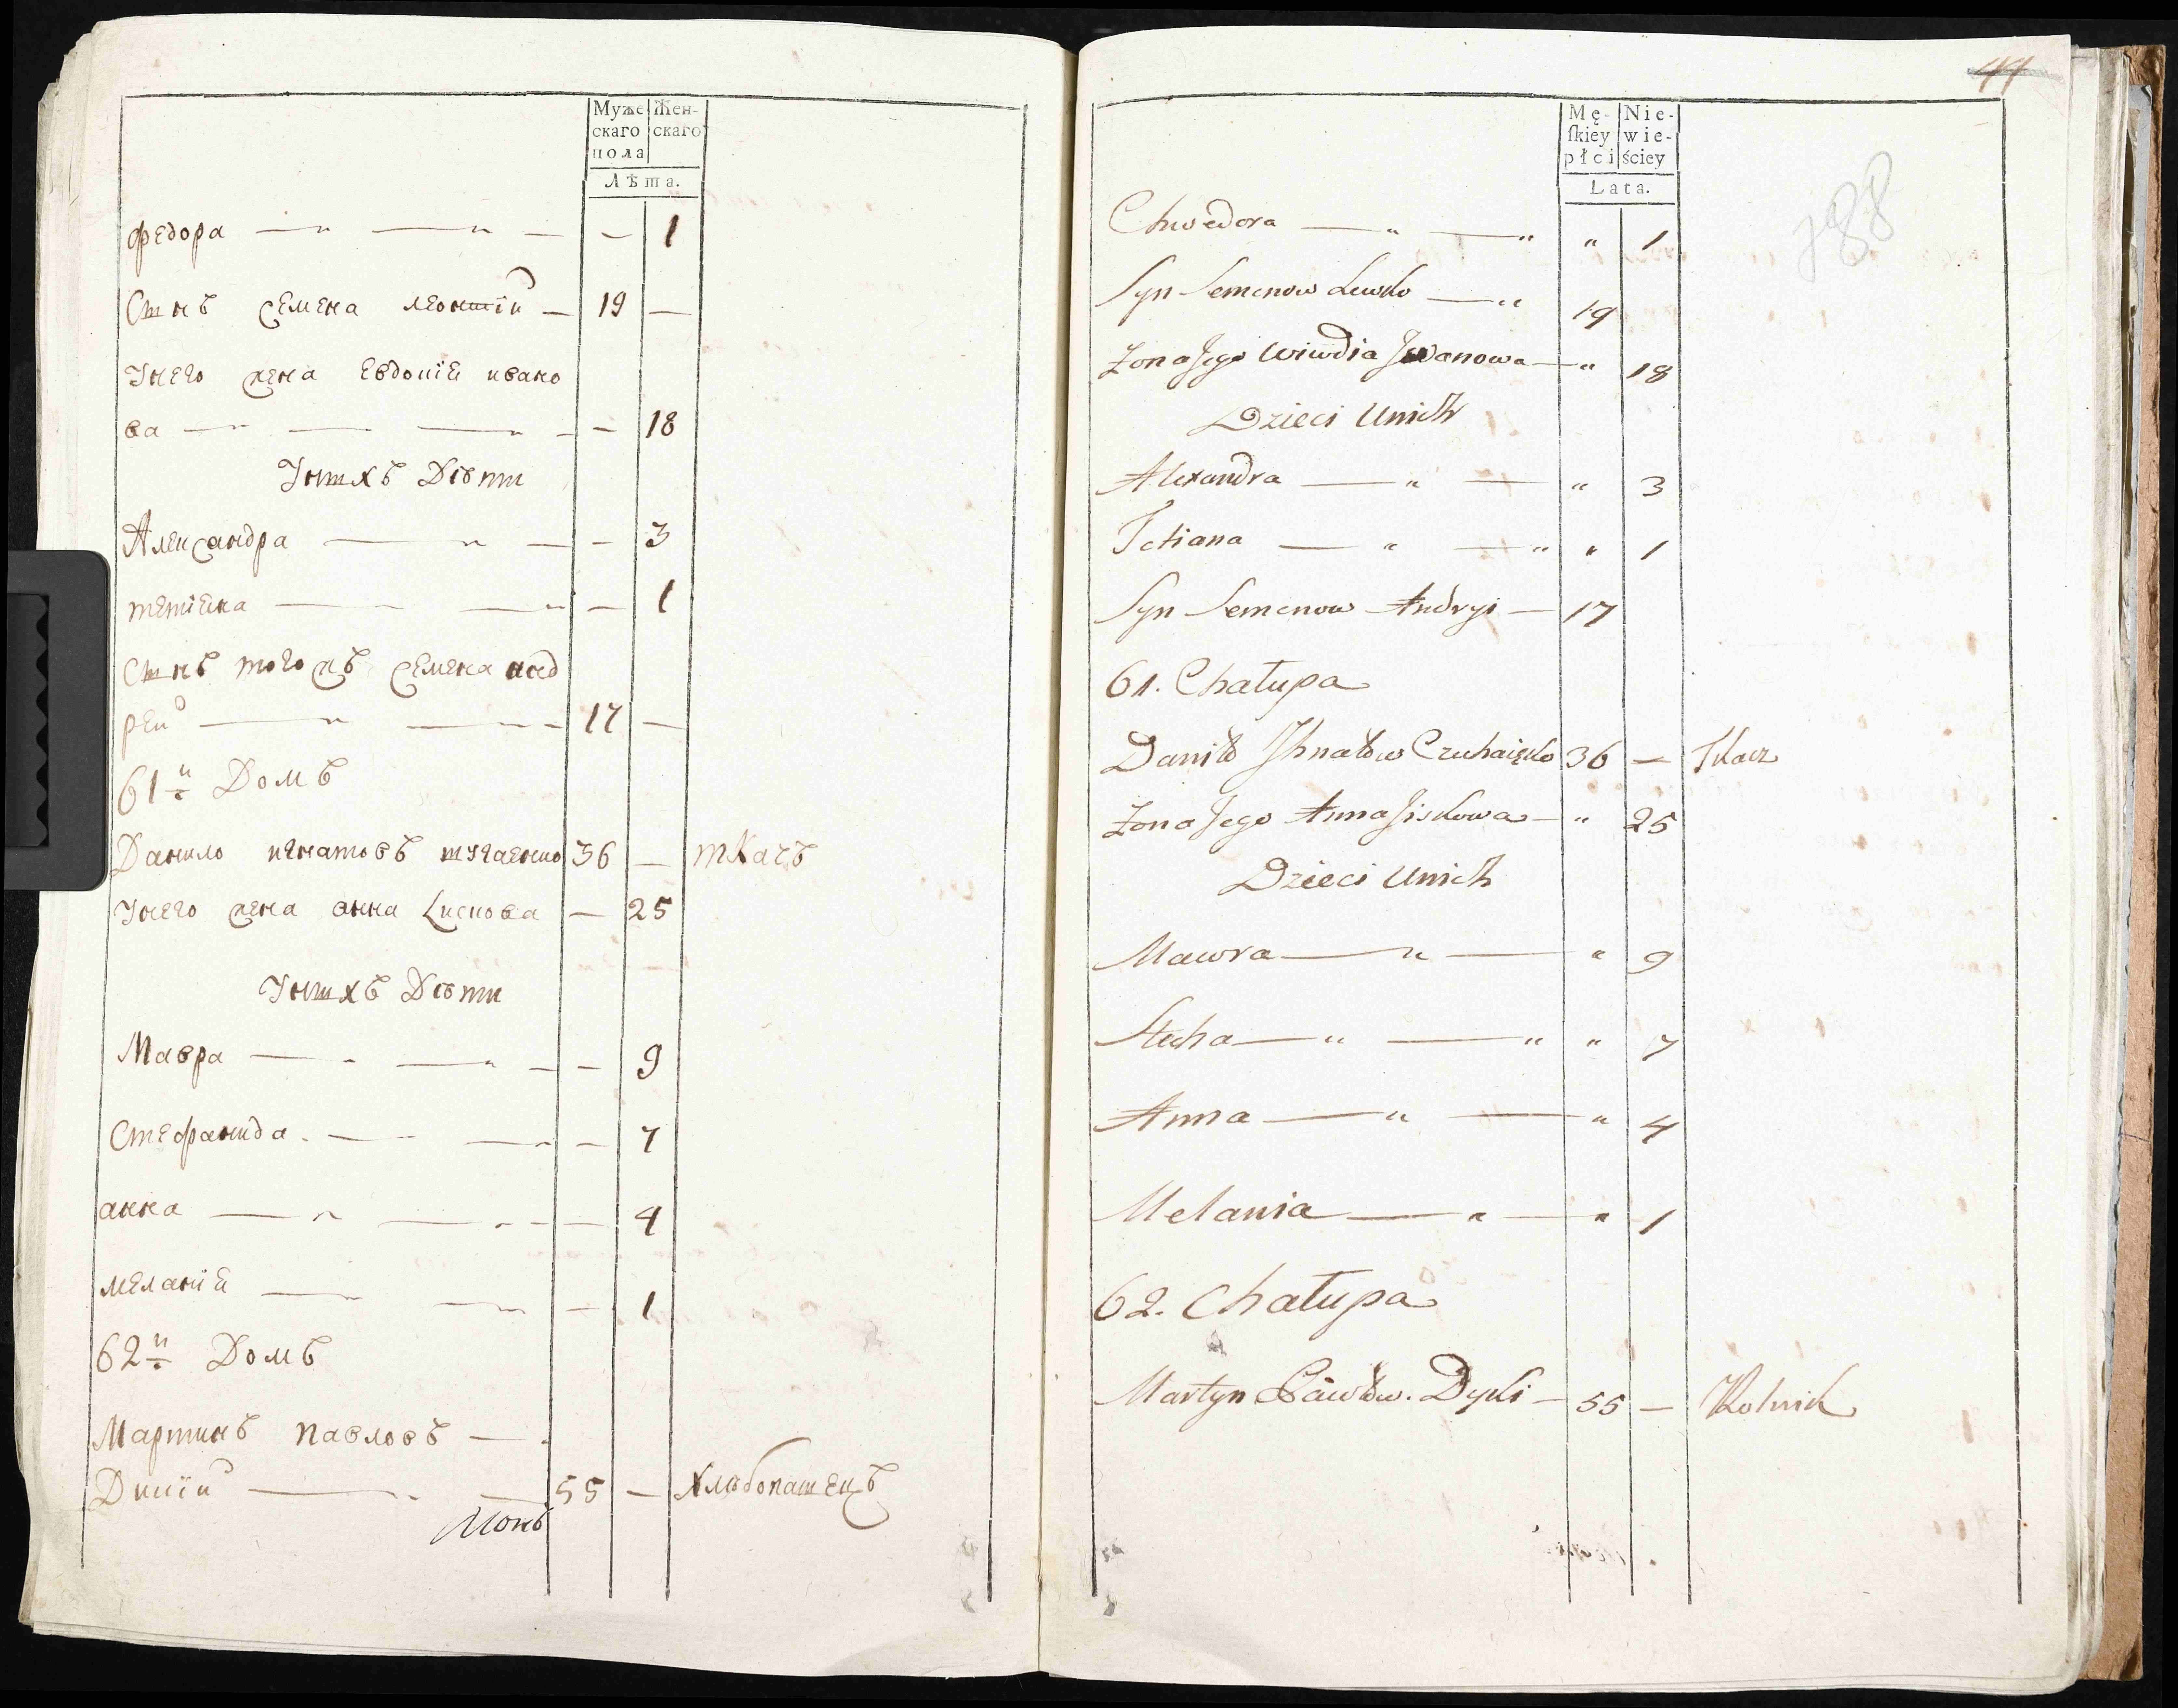 Муже Жен-
скаго скаго
пола
Лѣта.
Федора — „ — „ — — 1
Сынъ Семена Леонтїй — 19 —
Унего жена Евдокїя ивано
ва — „ — — „ — — 18
Унихъ Дѣти
Александра — „ — — 3
тетїяна — „ — „ — 1
Сынъ тогожъ Семена анд
рей — „ — „ — 17 —
61й Домъ
Данило игнатовъ чугаенко 36 — ткачъ
Унего жена анна Лискова — 25
Унихъ Дѣти
Мавра — „ — „ — — 9
Стефанида — „ — „ — 7
анна — „ — „ — — 4
меланїя — „ — „ — 1
62й Домъ
Мартинъ павловъ —
Дикїй — „ — 55 — хлѣбопашецъ
44
Mę- Nie-
ſkiey wie-
płci ściey
Lata.
788
Chwedora — „ — „ „ 1
Syn Semenow Lewko — „ 19
Żona Jego Wiwdia Jwanowa — „ 18
Dzieci Unich
Alexandra — „ — „ 3
Tetiana — „ — „ „ 1
Syn Semenow Andryi — 17
61. Chałupa
Daniło Jhnatow 36 — Tkacz
Żona Jego Anna Liskowa — „ 25
Dzieci Unich
Mawra — „ — „ 9
Stecha — „ — „ „ 7
Anna — „ — „ 4
Melania — „ — „ 1
62. Chałupa
Martyn Pawłow. Dyki — 55 — Rolnik